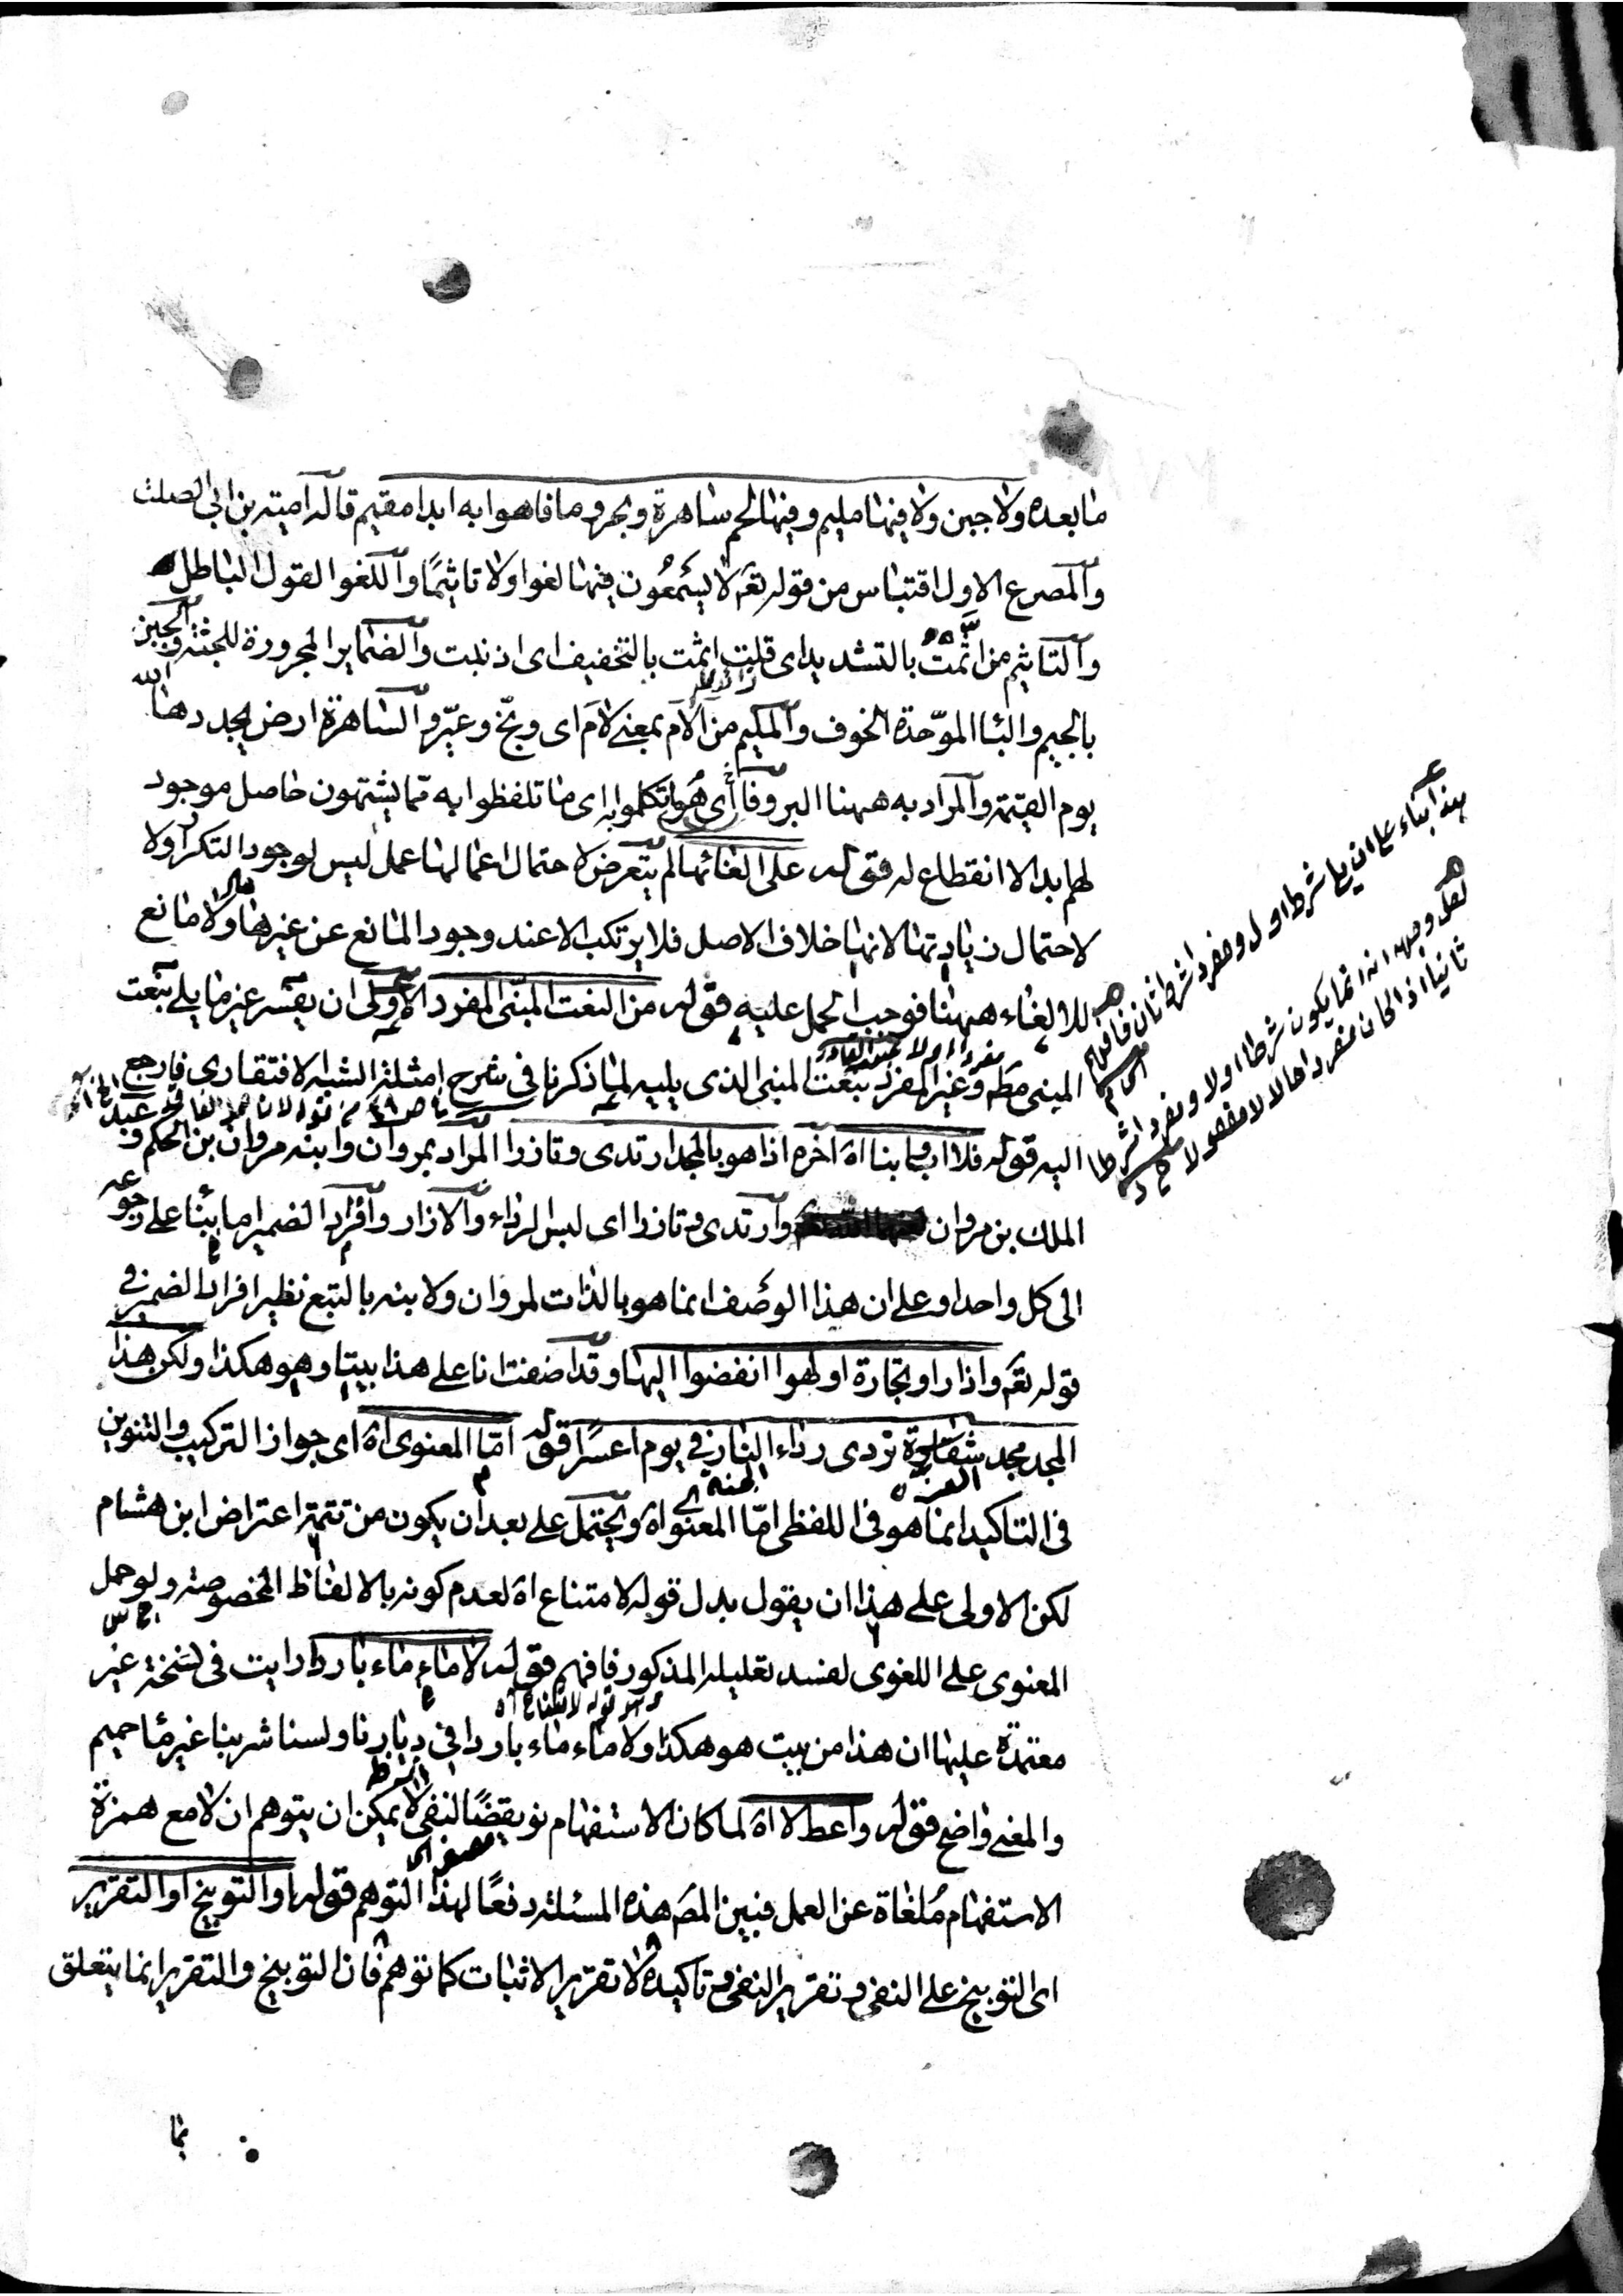 ما بعده ولا جبن ولا فيها مليم وفيها لحم ساهرة وبحر وما فاهوا به ابدا مقيم قاله امية بن ابي الصلت
والمصرع الاول اقتباس من قوله تعه لا يسمعون فيها لغوا ولا تاثيمًا واللغو القول الباطل
والتاثيم من اثّمتُ بالتشديد اى قلت اثمت بالتخفيف اى اذنبت والضماير المجرورة للجنة والجبن
بالجيم والباء الموحّدة الخوف والمليم من الآم بمعنى لام اى وبّخ وعيّر والساهرة ارض يجددها الله
يوم القيمة والمراد به ههنا البر وفاهُوا اى تكلموا به اى ما تلفظوا به مما يشتهون حاصل موجود
لهم بدا لا انقطاع له قوله على الغائها لم يتعرض لاحتمال اعمالها عمل ليس لوجود التكرار ولا
لاحتمال زيادتها لانها خلاف الاصل فلا يرتكب الا عند وجود المانع عن غيرها ولا مانع
للالغاء ههنا فوجب الحمل عليه قوله من النعت المبنى المفرد الاولى ان يفسر غير ما يلى بنعت
المبنى مطه وغير المفرد بنعت المبنى الذى يليه لما ذكرنا فى شرح امثلة الشبه الافتقارى فارجع
اليه قوله فلا اب وابنا اه اخره اذا هو بالمجد ارتدى وتازرا المراد بمروان وابنه مروان بن الحكم وعبد
الملك بن مروان وارتدى وتازرا اى لبس الرداء والازار وافراد الضمير اما بناء على رجوعه
الى كل واحد او على ان هذا الوصف انما هو بالذات لمروان ولابنه بالتبع نظير افراد الضمير فى
قوله تعه واذا راو تجارة او لهوا انفضوا اليها وقد اضفت انا على هذا بيتا وهو هكذا ولكن هذا
المجد مجد شقاوة تردى رداء النار فى يوم اعسرا قوله امّا المعنوى اه اى جواز التركيب والتنوين
فى التاكيد انما هو فى اللفظى امّا المعنوى اه ويحتمل على بعد ان يكون من تتمة اعتراض ابن هشام
لكن الاولى على هذا ان يقول بدل قوله لامتناع اه لعدم كونه بالالفاظ المخصوصة ولو حمل
المعنوى على اللغوى لفسد تعليله المذكور فافهم قوله لا ماء ماء باردا رايت فى نسخة غير
معتمدة عليها ان هذا من بيت هو هكذا ولا ماء ماء باردا فى ديارنا ولسنا شربنا غير ماء حميم
والمعنى واضح قوله واعط لا اه لما كان الاستفهام نويقضًا لنفى لا يمكن ان يتوهم ان لا مع همزة
الاستفهام مُلغاة عن العمل فبين المصَ هذه المسئلة دفعًا لهذا التوهم قوله او التوبيخ او التقرير
اى التوبيخ على النفى وتقرير النفى وتاكيده لا تقرير الاثبات كما توهم فان التوبيخ والتقرير انما يتعلق
هذا بناء على ان شرط اول ومفردا شرط ثان فافهم
لعل وجهه انه انما يكون شرطا اولا ومفردا شرطا
ثانيا اذا كان مفردا حالا لا مفعولا